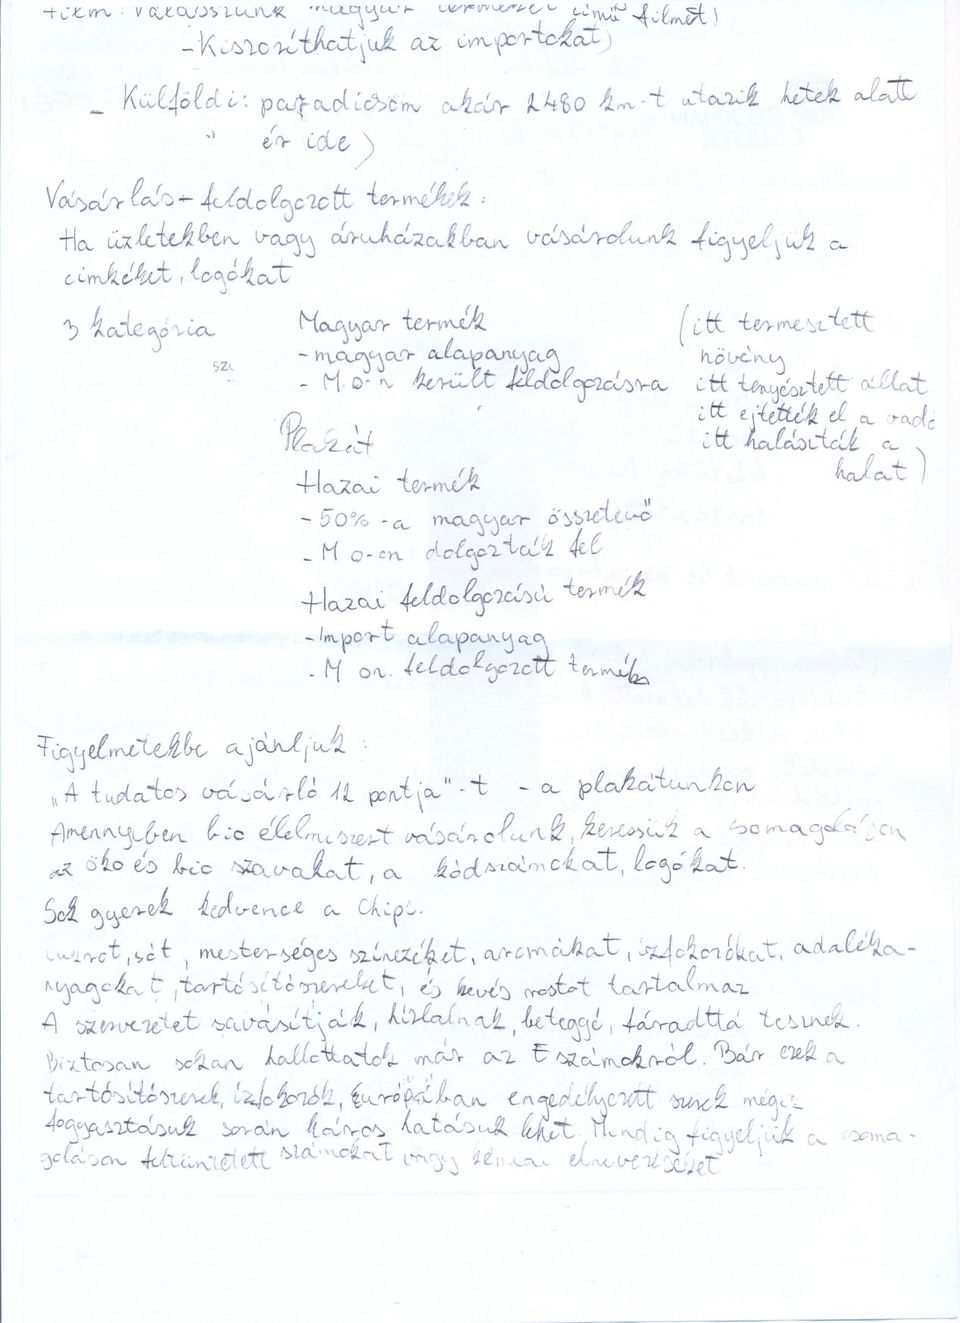 Film: Válasszunk magyar terméket című filmet!
- Kiszoríthatjuk az importokat)
- Külföldi: paradicsom akár 2480 km-t utazik hetek alatt
" ér ide)
Vásárlás - feldolgozott termékek:
Ha üzletekben vagy áruházakban vásárolunk figyeljük a
címkéket, logókat
3 kategória Magyar termék (itt termesztett
- magyar alapanyag növény
- M.o-n került feldolgozásra itt tenyésztett állat
itt ejtették el a vad
Plakát itt halászták a
Hazai termék halat)
- 50%-a magyar összetevő
- M o-on dolgozták fel
Hazai feldolgozású termék
- Import alapanyag
- M on. feldolgozott termék
Figyelmetekbe ajánljuk:
„A tudatos vásárló 12 pontja"-t - a plakátunkon
Amennyiben bio élelmiszert vásárolunk, keressük a csomagoláson
az öko és bio szavakat, a kódszámokat, logókat.
Sok gyerek kedvence a Chips.
Cukrot, sót, mesterséges színezéket, aromákat, ízfokozókat, adaléka-
nyagokat, tartósítószereket, és kevés rostot tartalmaz
A szervezetet savasítják, hízlalnak, beteggé, fáradttá tesznek.
Biztosan sokan hallottatok már az E számokról. Bár ezek a
tartósítószerek, ízfokozók, Európában engedélyezett szerek mégis
fogyasztásuk során káros hatásuk lehet. Mindig figyeljük a csoma-
goláson feltüntetett számokat vagy kémiai elnevezéseket